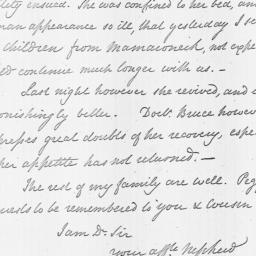 ensued. She was confined to her bed, an
man appearance so ill, that yesterday I s
children from Mamaroneck, not expe
continue much longer with us. –
Last night however she revived, and
onishingly better. Doctr. Bruce howev
presses great doubts of her recovery, espe
her appetite has not returned. –
The rest of my family are well. Peg
uests to be remembered to you & Cousin
I am Dr. Sir
your affte. Nephew